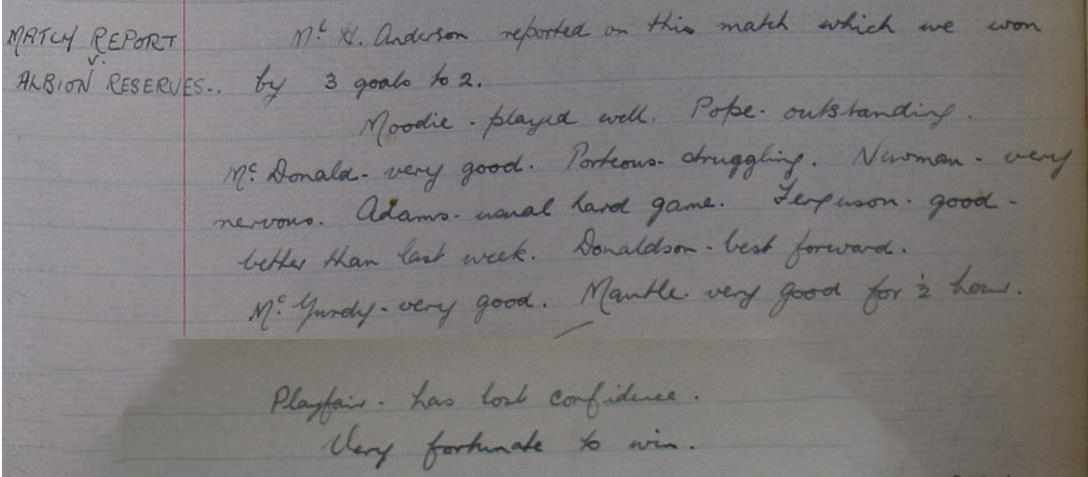 MATCH REPORT
v.
ALBION RESERVES..
Mr H. Anderson reported on this match which we won
by 3 goals to 2.
Moodie - played well. Pope - outstanding.
Mc Donald - very good. Porteous - struggling. Newman - very
nervous. Adams - usual hard game. Ferguson - good -
better than last week. Donaldson - best forward.
Mc Gurdy - very good. Mantle - very good for ½ hour.
Playfair - has lost confidence.
Very fortunate to win.